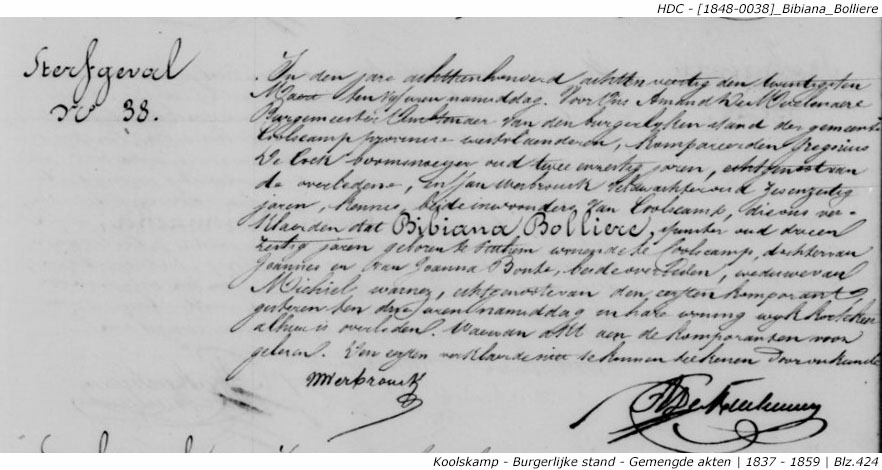 HDC - [1848-0038]_Bibiana_Bolliere
Sterfgeval
N° 38.
In den jare achttienhonderd achtenveertig den twintigsten
Maart ten vyf uren namiddag. Voor Ons Amand De Meulenaere
Burgemeester Ambtenaer van den burgerlyken stand der gemeente
Coolscamp provincie westvlaenderen, kompareerden Gregorius
De Cock boomsnoeyer oud twee enzestig jaren, echtgenoot van
de overledene, en Jan Werbrouck veldwachter oud zesenzestig
jaren, kennis, beide inwoonders van Coolscamp, die ons ver-
klaerden dat Bibiana Bolliere, spinster oud drieen
zestig jaren geboren te wonende te Coolscamp, dochter van
Joannes en van Joanna Bonte, beide overleden, weduwe van
Michiel Warnez, echtgenoote van den eersten komparant,
gisteren ten dry uren namiddag en hare woning wyk
alhier is overleden. Waervan akt aen de komparanten voor
gelezen. Den eersten verklaerde niet te kunnen teekenen door onkunde
Werbrouck
Koolskamp - Burgerlijke stand - Gemengde akten | 1837 - 1859 | Blz.424